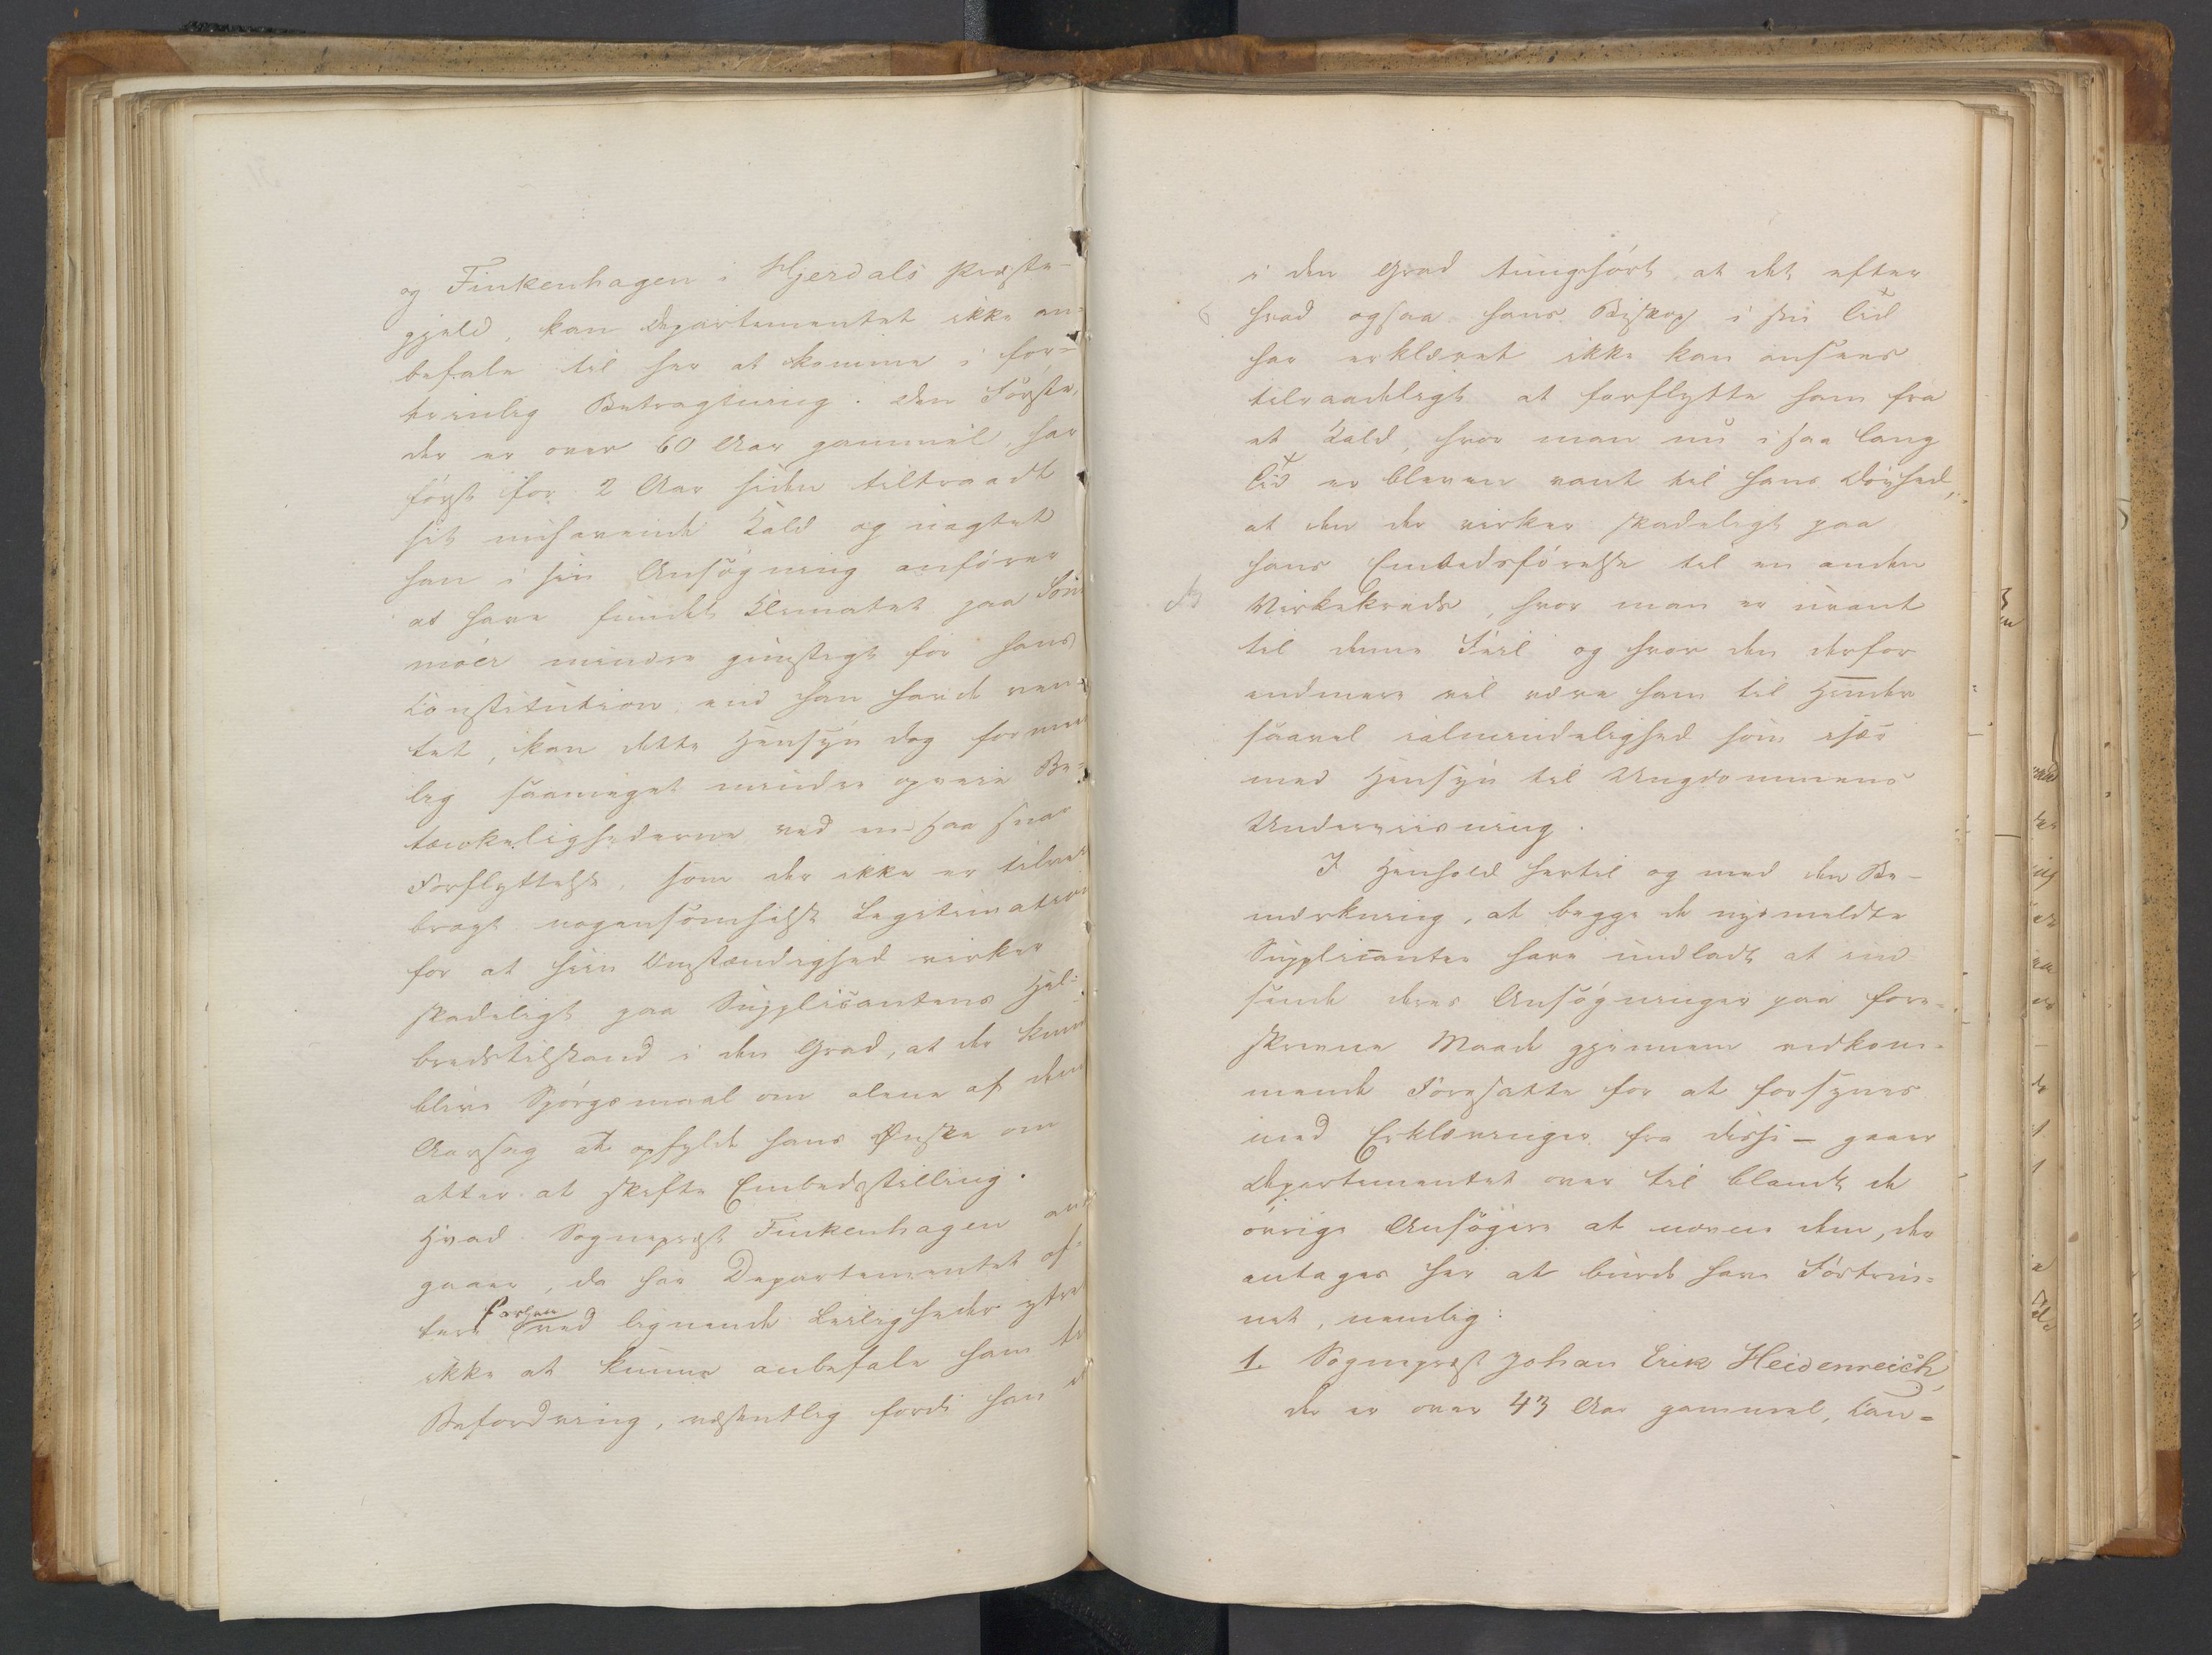 og Finkenhagen i Hjerdals Præste-
gjeld, kan Departementet ikke an-
befale til her at komme i for-
trinlig Betragtning. Den Første,
der er over 60 Aar gammel, har
først for 2 Aar siden tiltraadt
sit nuhavende Kald og uagtet
han i sin Ansøgning anfører
at have fundet Klimatet paa Sönd
möer mindre gunstigt for hans
Constitution end han havde ven-
tet, kan dette Hensyn dog formeent
lig saameget mindre opveie Be-
tænkelighederne ved en saa snar
Forflyttelse, som der ikke er tilveie
bragt nogensomhelst Legitimation
for at hiin Omstændighed virker
skadeligt paa Supplicantens Hel-
bredstilstand i den Grad, at der kan
blive Spörgsmaal om alene af den
Aarsag at opfylde hans Ønske om
atter at skifte Embedsstilling.
Hvad Sognepræst Finkenhagen an-
gaaer, da har Departementet of-
tere forhen ved lignende Leiligheder yttret
ikke at kunne anbefale ham til
Befordring, væsentlig fordi han er
i den Grad tunghört at det efter
hvad ogsaa hans Biskop i sin Tid
har erklæret ikke kan ansees
tilraadeligt at forflytte ham fra
et Kald, hvor man nu i saa lang
Tid er bleven vant til hans Dövhed,
at den der virker skadeligt paa
hans Embedsförelse til en anden
Virkekreds, hvor man er uvant
til denne Feil og hvor den derfor
endmere vil være ham til Hinder
saavel ialmindelighed som især
med Hensyn til Ungdommens
Underviisning.
I Henhold hertil og med den Be-
mærkning, at begge de nysmeldte
Supplicanter have undladt at ind
sende deres Ansøgninger paa fore-
skreven Maade gjennem vedkom-
mende Foresatte for at forsynes
med Erklæringer fra disse – gaaer
Departementet over til blandt de
övrige Ansögere at nævne dem, der
antages her at burde have Fortrin-
net, nemlig:
1. Sognepræst Johan Erik Heidenreich,
der er over 43 Aar gammel, Can-